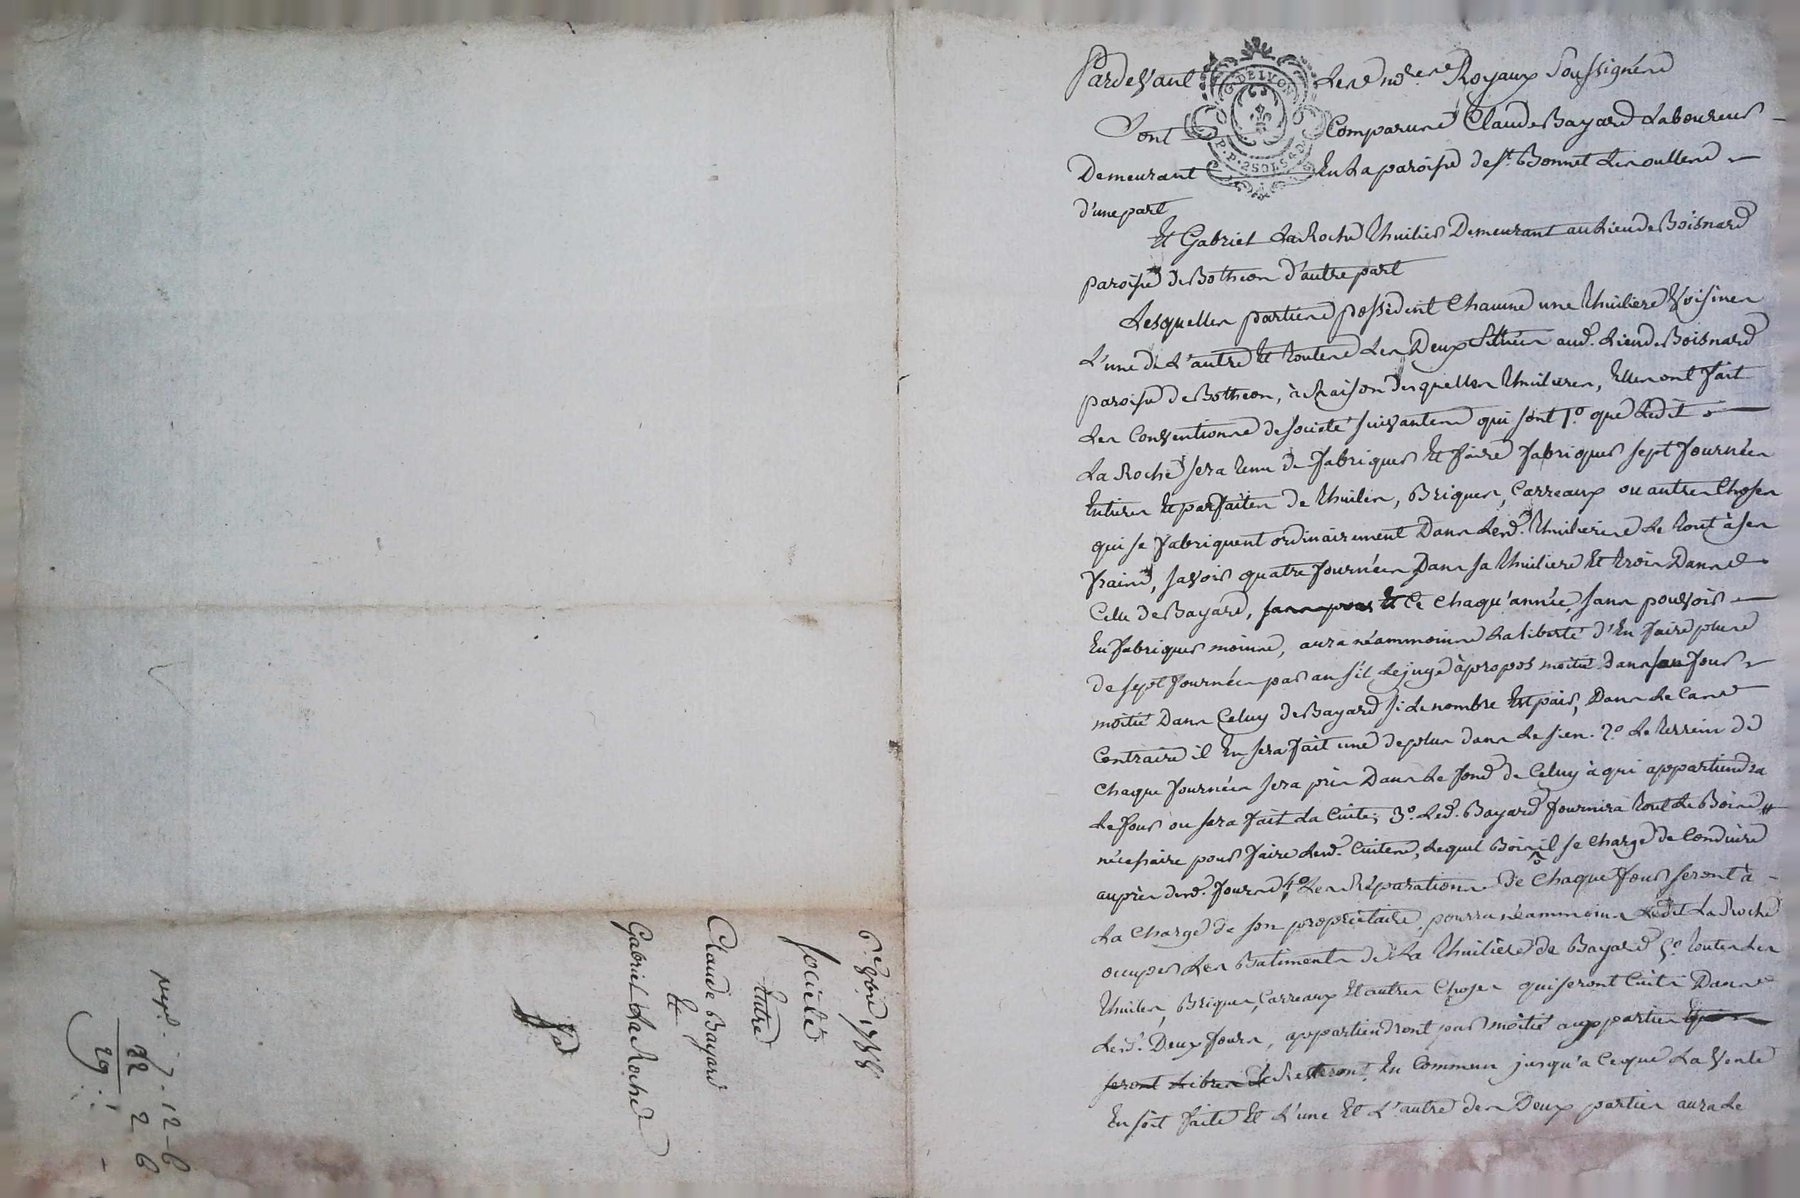 Pardevant Les nores Royaux Soussignés
G. DE LYON
P.P. 2 SOLS 4 D.
Sont Comparus Claude Bayard Laboureur
Demeurant En La paroisse de st. Bonnet Les oulles
d'une part
Et Gabriel LaRoche Thuilier Demeurant au Lieu de Boisnard
paroisse de Bothéon d'autre part
Lesquelles parties possèdent Chacune une Thuiliere Voisines
L'une de L'autre Et toutes Les Deux Situées aud. Lieu de Boisnard
paroisse de Bothéon, à Raison desquelles Thuilieres, Elles ont fait
Les Conventions de societé suivantes qui sont 1.o que Ledit
LaRoche sera tenu de fabriquer Et faire fabriquer sept fournées
Entieres Et parfaites de Thuiles, Briques, Carreaux ou autres Choses
qui se fabriquent ordinairement Dans Lesd. Thuilieres Le tout à ses
fraix, savoir quatre fournées Dans sa Thuiliere Et trois Dans
Celle de Bayard, Et Ce Chaqu'année, sans pouvoir
En fabriquer moins, aura néammoins La liberté d'En faire plus
de sept fournées par an s'il Le juge à propos moitié dans son four
moitié Dans Celuy de Bayard si Le nombre Est pair, Dans Le Cas
Contraire il En sera fait une de plus dans Le sien. 2.o Le terrein de
Chaque fournées sera pris Dans Le fond de Celuy à qui appartiendra
Le four ou sera fait La Cuite; 3.o Led. Bayard fournira tout Le Bois
nécessaire pour faire Lesd. Cuites, Lequel Bois il se Charge de Conduire
auprès desd. fours 4.o Les Réparations de Chaque four seront à
La Charge de son propriétaire, pourra néammoins Ledit LaRoche
occuper Les Batiments de La Thuilière de Bayard 5.o toutes Les
Thuiles, Briques, Carreaux Et autres Choses qui seront Cuits Dans
Lesd. Deux fours, appartiendront par moitié aux parties
seront Libres de Resteront En Commun jusqu'à Ceque La Vente
En soit faite Et L'une Et L'autre des Deux parties aura Le
6.e 9bre 1788
Societé
Entre
Claude Bayard
Et
Gabriel LaRoche
7. 12 - 6
22 2 6
29